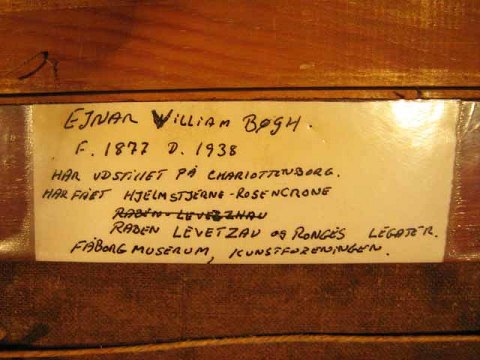 EJNAR WILLIAM BØGH.
F. 1877 D. 1938
HAR UDSTILLET PÅ CHARLOTTENBORG.
HAR FÅET HJELMSTJERNE-ROSENCRONE
RABEN-LEVETZHAU
RABEN LEVETZAU OG RONGES LEGATER.
FÅBORG MUSERUM, KUNSTFOZENINGEN.